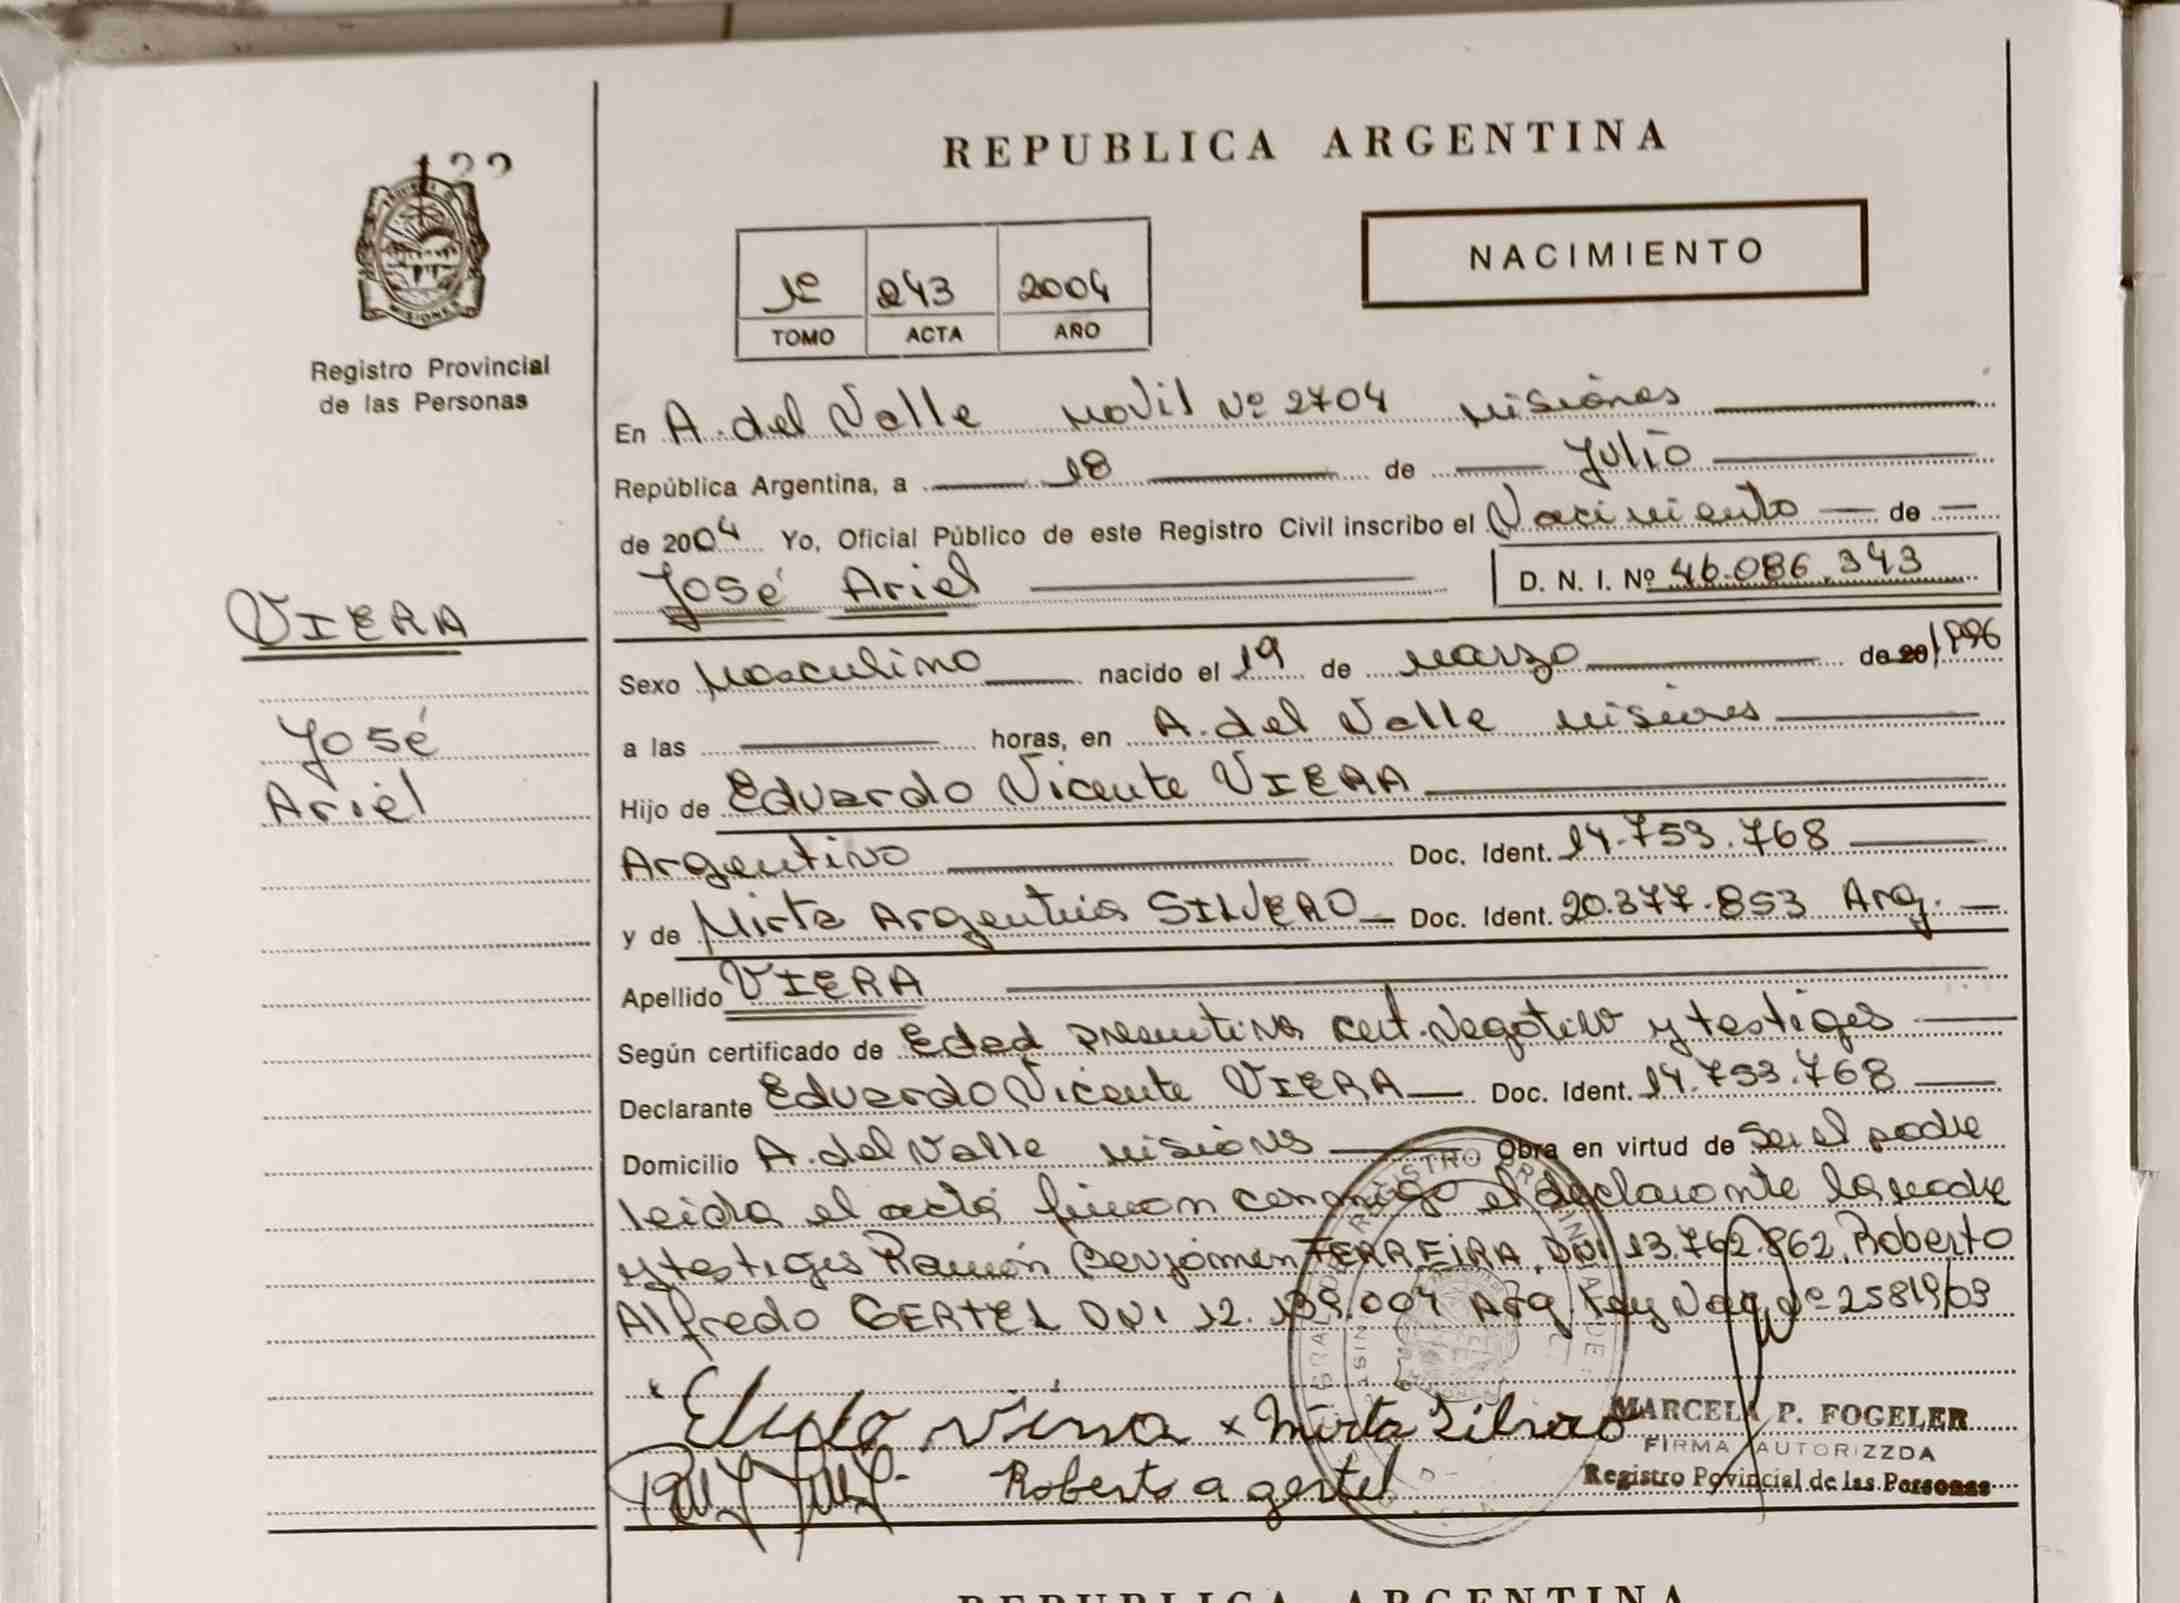 122
REPUBLICA ARGENTINA
NACIMIENTO
1º 243 2004
TOMO ACTA AÑO
MISIONES
Registro Provincial
de las Personas
En A. del Valle Movil Nº 2704 Misiones
República Argentina, a 18 de Julio
de 2004 Yo, Oficial Público de este Registro Civil inscribo el Nacimiento de
José Ariel D. N. I. Nº 46.086.343
VIERA
José
Ariel
Sexo Masculino nacido el 19 de Marzo de 20/1996
a las horas, en A. del Valle Misiones
Hijo de Eduardo Vicente VIERA
Argentino Doc. Ident. 14.753.768
y de Mirta Argentina SILVERO Doc. Ident. 20.377.853 Arg.
Apellido VIERA
Según certificado de Edad presuntiva cert. Negativo y testigos
Declarante Eduardo Vicente VIERA Doc. Ident. 14.753.768
Domicilio A. del Valle Misiones Obra en virtud de Ser el padre
leida el acta firman conmigo el declarante la madre
y testigos Ramón Benjamen FERREIRA DNI 13.762.862, Roberto
Alfredo GERTEL DNI 12. .004 Arg. Ley Nac. Nº 25819/03
Mirta Silvero
Roberto a gertel
MARCELA P. FOGELER
FIRMA AUTORIZZDA
Registro Povincial de las Personas
REPUBLICA ARGENTINA